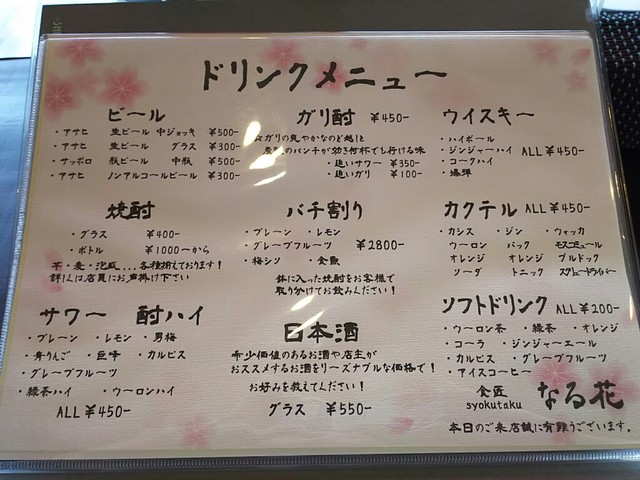 ドリンクメニュー
ビール
・アサヒ 生ビール 中ジョッキ ¥500-
・アサヒ 生ビール グラス ¥300-
・サッポロ 瓶ビール 中瓶 ¥500-
・アサヒ ノンアルコールビール ¥300-
ガリ酎 ¥450-
☆ガリの爽やかなのど越しと
のパンチが効き何杯でも行ける味
・追いサワー ¥350-
・追いガリ ¥100-
ウイスキー
・ハイボール
・ジンジャーハイ ALL ¥450-
・コークハイ
・爆弾
焼酎
・グラス ¥400-
・ボトル ¥1000-から
芋・麦・泡盛...各種揃えております!
詳しくは店員にお声掛け下さい
バチ割り
・プレーン ・レモン
・グレープフルーツ ¥2800-
・梅シソ ・金魚
鉢に入った焼酎をお客様で
取り分けてお飲みください!
カクテル ALL ¥450-
・カシス ・ジン ・ウォッカ
ウーロン バック モスコミュール
オレンジ オレンジ ブルドック
ソーダ トニック スクリュードライバー
サワー 酎ハイ
・プレーン ・レモン ・男梅
・青りんご ・巨峰 ・カルピス
・グレープフルーツ
・緑茶ハイ ・ウーロンハイ
ALL ¥450-
日本酒
希少価値のあるお酒や店主が
おススメするお酒をリーズナブルな価格で!
お好みを教えてください!
グラス ¥550-
ソフトドリンク ALL ¥200-
・ウーロン茶 ・緑茶 ・オレンジ
・コーラ ・ジンジャーエール
・カルピス ・グレープフルーツ
・アイスコーヒー
食匠 なる花
syokutaku
本日のご来店誠に有難うございます。